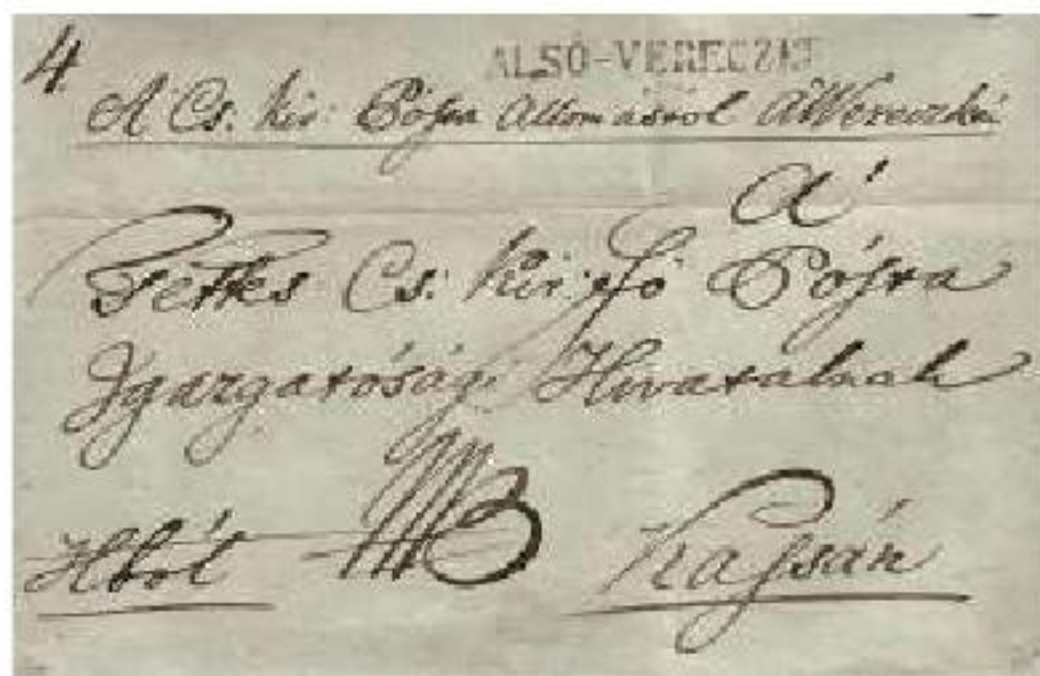 4.
ALSÓ-VERECZKE
A' Cs. kir: Pósta Állomásról A'Vereczkei
A'
Tettes Cs: kir: fő Pósta
Igazgatósági Hivatalnak
Hból Kassán